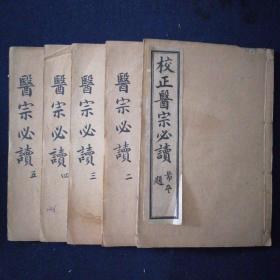 校正醫宗必讀
題
醫宗必讀
二
醫宗必讀
三
醫宗必讀
四
醫宗必讀
五